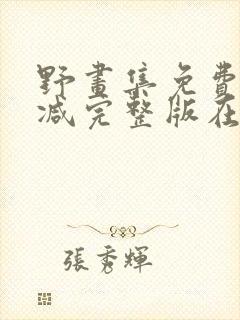 野畫集免費
减完整版在
張秀輝